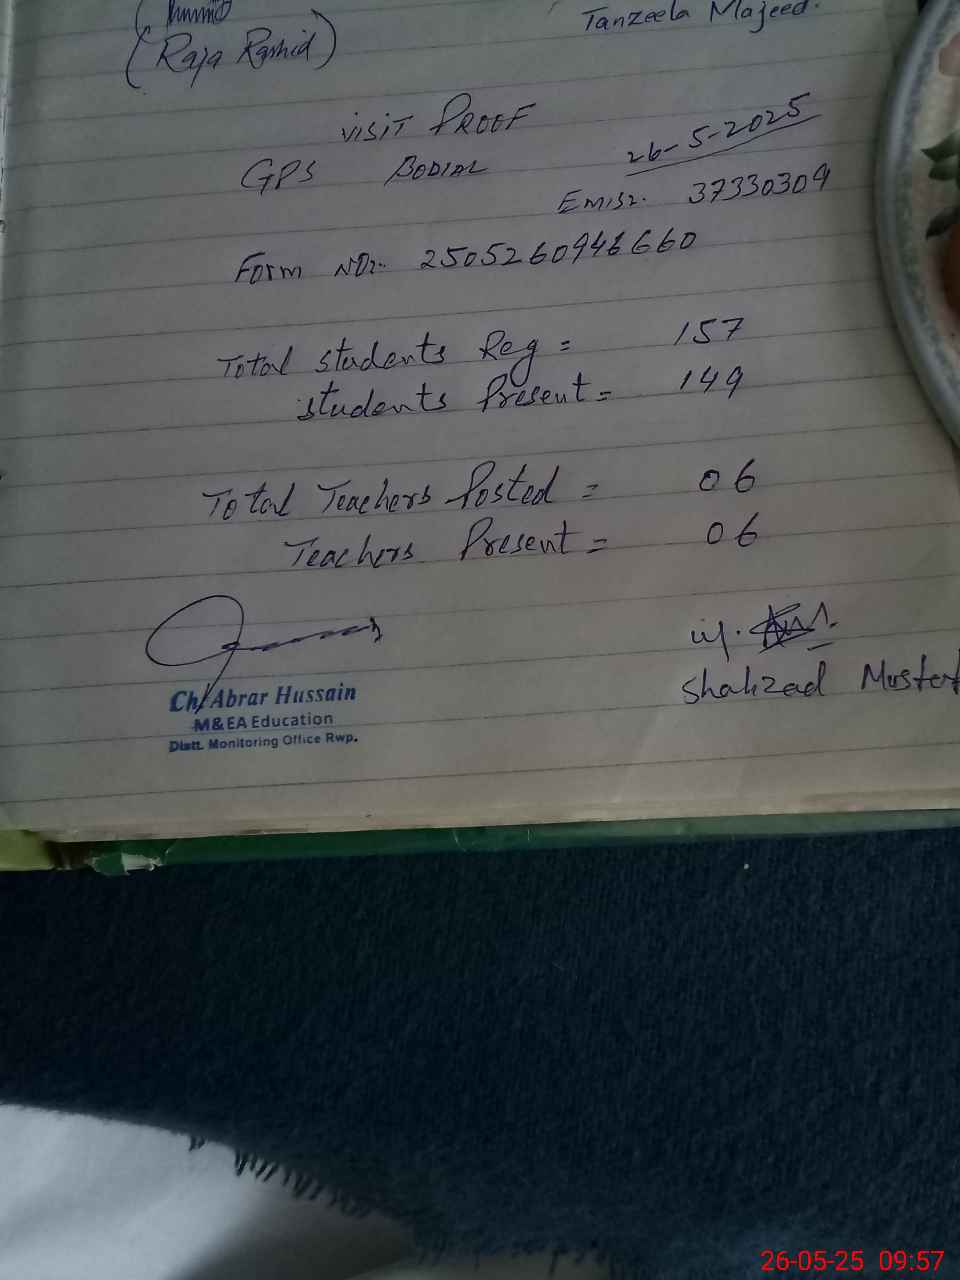 (Raja Rashid)
Tanzeela Majeed.
VISIT PROOF
26-5-2025
GPS BODIAL
Emis:. 37330309
Form NO:. 2505260946660
Total students Reg = 157
students Present = 149
Total Teachers Posted = 06
Teachers Present = 06
Ch/Abrar Hussain
M&EA Education
Distt. Monitoring Office Rwp.
Shahzad
26-05-25 09:57